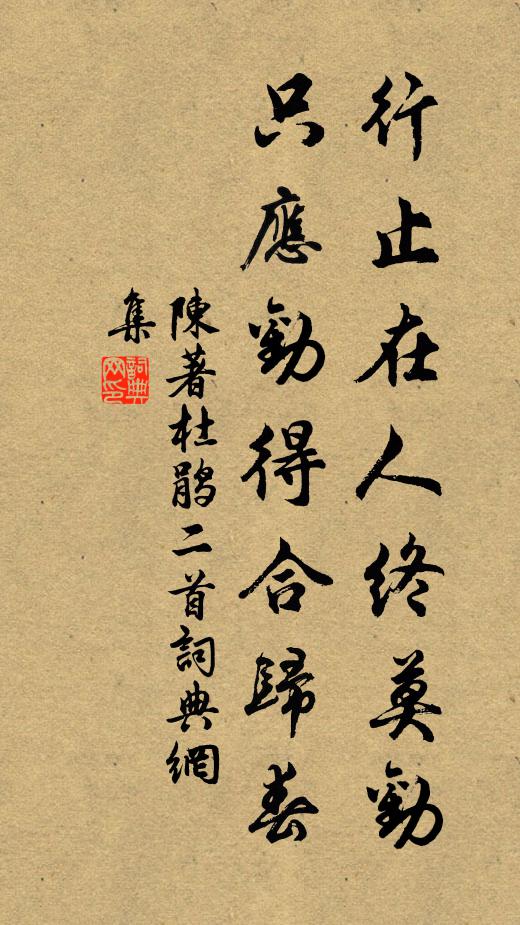 行止在人終莫勸
只應勸得合歸春
陳著杜鹃二首詞典網
集
詞典
网印